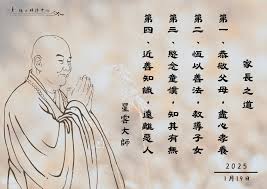 家長之道
第一、恭敬父母，盡心孝養
第二、恆以善法，教導子女
第三、愍念童僕，知其有無
第四、近善知識，遠離惡人
星雲大師
2025
1月19日